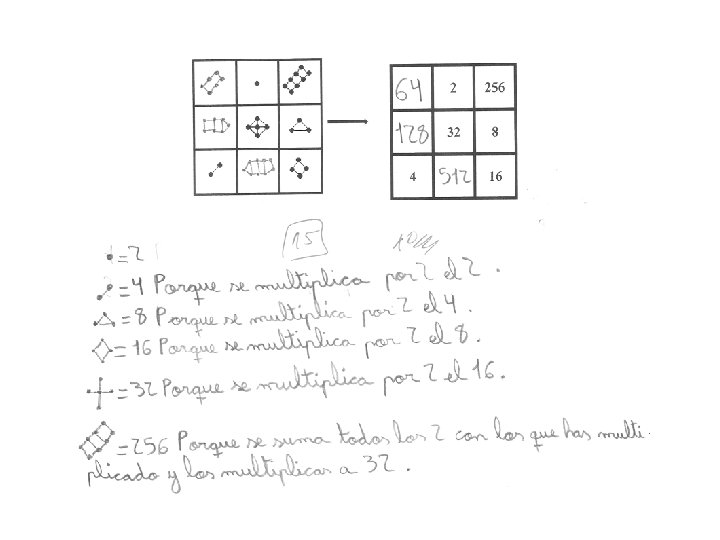 64 2 256
128 32 8
4 512 16
15
= 2
= 4 Porque se multiplica por 2 el 2.
= 8 Porque se multiplica por 2 el 4.
= 16 Porque se multiplica por 2 el 8.
= 32 Porque se multiplica por 2 el 16.
= 256 Porque se suma todos los 2 con los que has multi-
plicado y los multiplicas a 32.